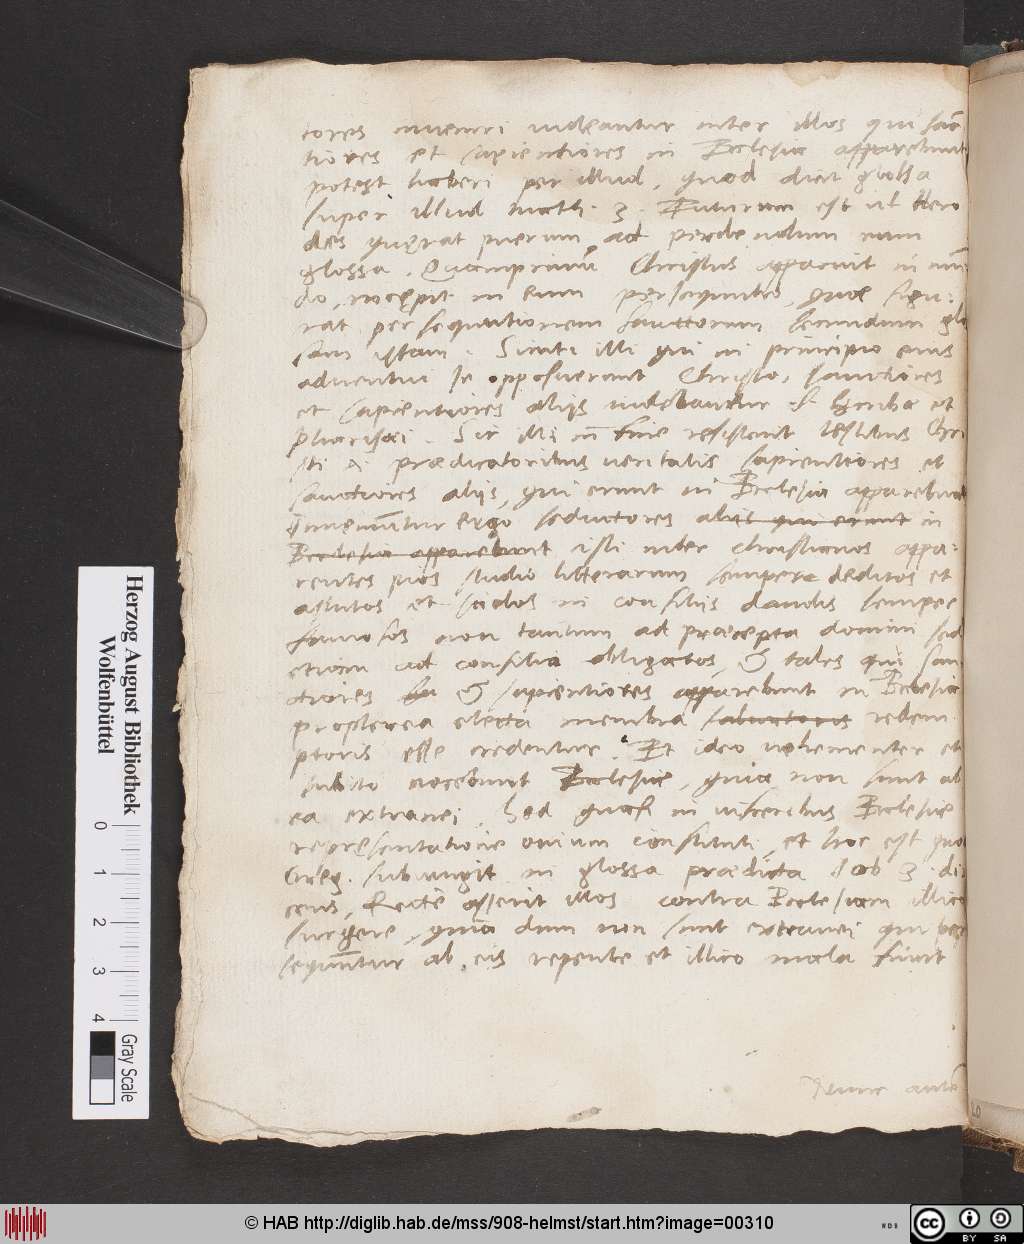 tores inueniri uideantur inter illos qui sāc
tiores et sapientiores in Ecclesia apparebunt
potest haberi per illud, quod dicit glossa
super illud Matth. 3. Futurum est ut Hero
des quęrat puerum ad perdendum eum
glossa. Quamprimū Christus apparuit in mū
do, incępit in eum persequutio, quæ figu:
rat persequutionem sanctorum secundum glo
sam istam. Sicuti illi qui in principio eius
aduentui se opposuerunt Christo, sanctiores
et sapientiores alijs uidebantur .s. scribæ et
pharisæi. Sic illi in fine resistent testibus Chri
sti i. prædicatoribus ueritatis sapientiores et
sanctiores alijs, qui erunt in Ecclesia apparebunt
Inueniūtur ergo seductores alijs qui erunt in
Ecclesia apparebunt isti inter christianos appa:
rentes pios studio litterarum semper deditos et
astutos et in consilijs dandis semper
famosos non tantum ad præcepta domini sed
etiam ad consilia obligatos, & tales qui san
ctiores & sapientiores apparebunt in Ecclesia
propterea electa membra saluatoris redem
ptoris esse credentur. Et ideo uehementer et
subito nocebunt Ecclesiæ, quia non sunt ab
ea extranei, sed quasi in uisceribus Ecclesiæ
repręsentatione ouium constituti, et hoc est quod
Greg. subiungit in glossa prædicta Iob 3. di
cens, Recte asserit illos contra Ecclesiam illico
surgere, quia dum non sunt extranei qui per
sequūntur ab eis repente et illico mala fiunt
Nunc autē
Herzog August Bibliothek
Wolfenbüttel
0 1 2 3 4
Gray Scale
© HAB http://diglib.hab.de/mss/908-helmst/start.htm?image=00310
WDB
cc
BY SA